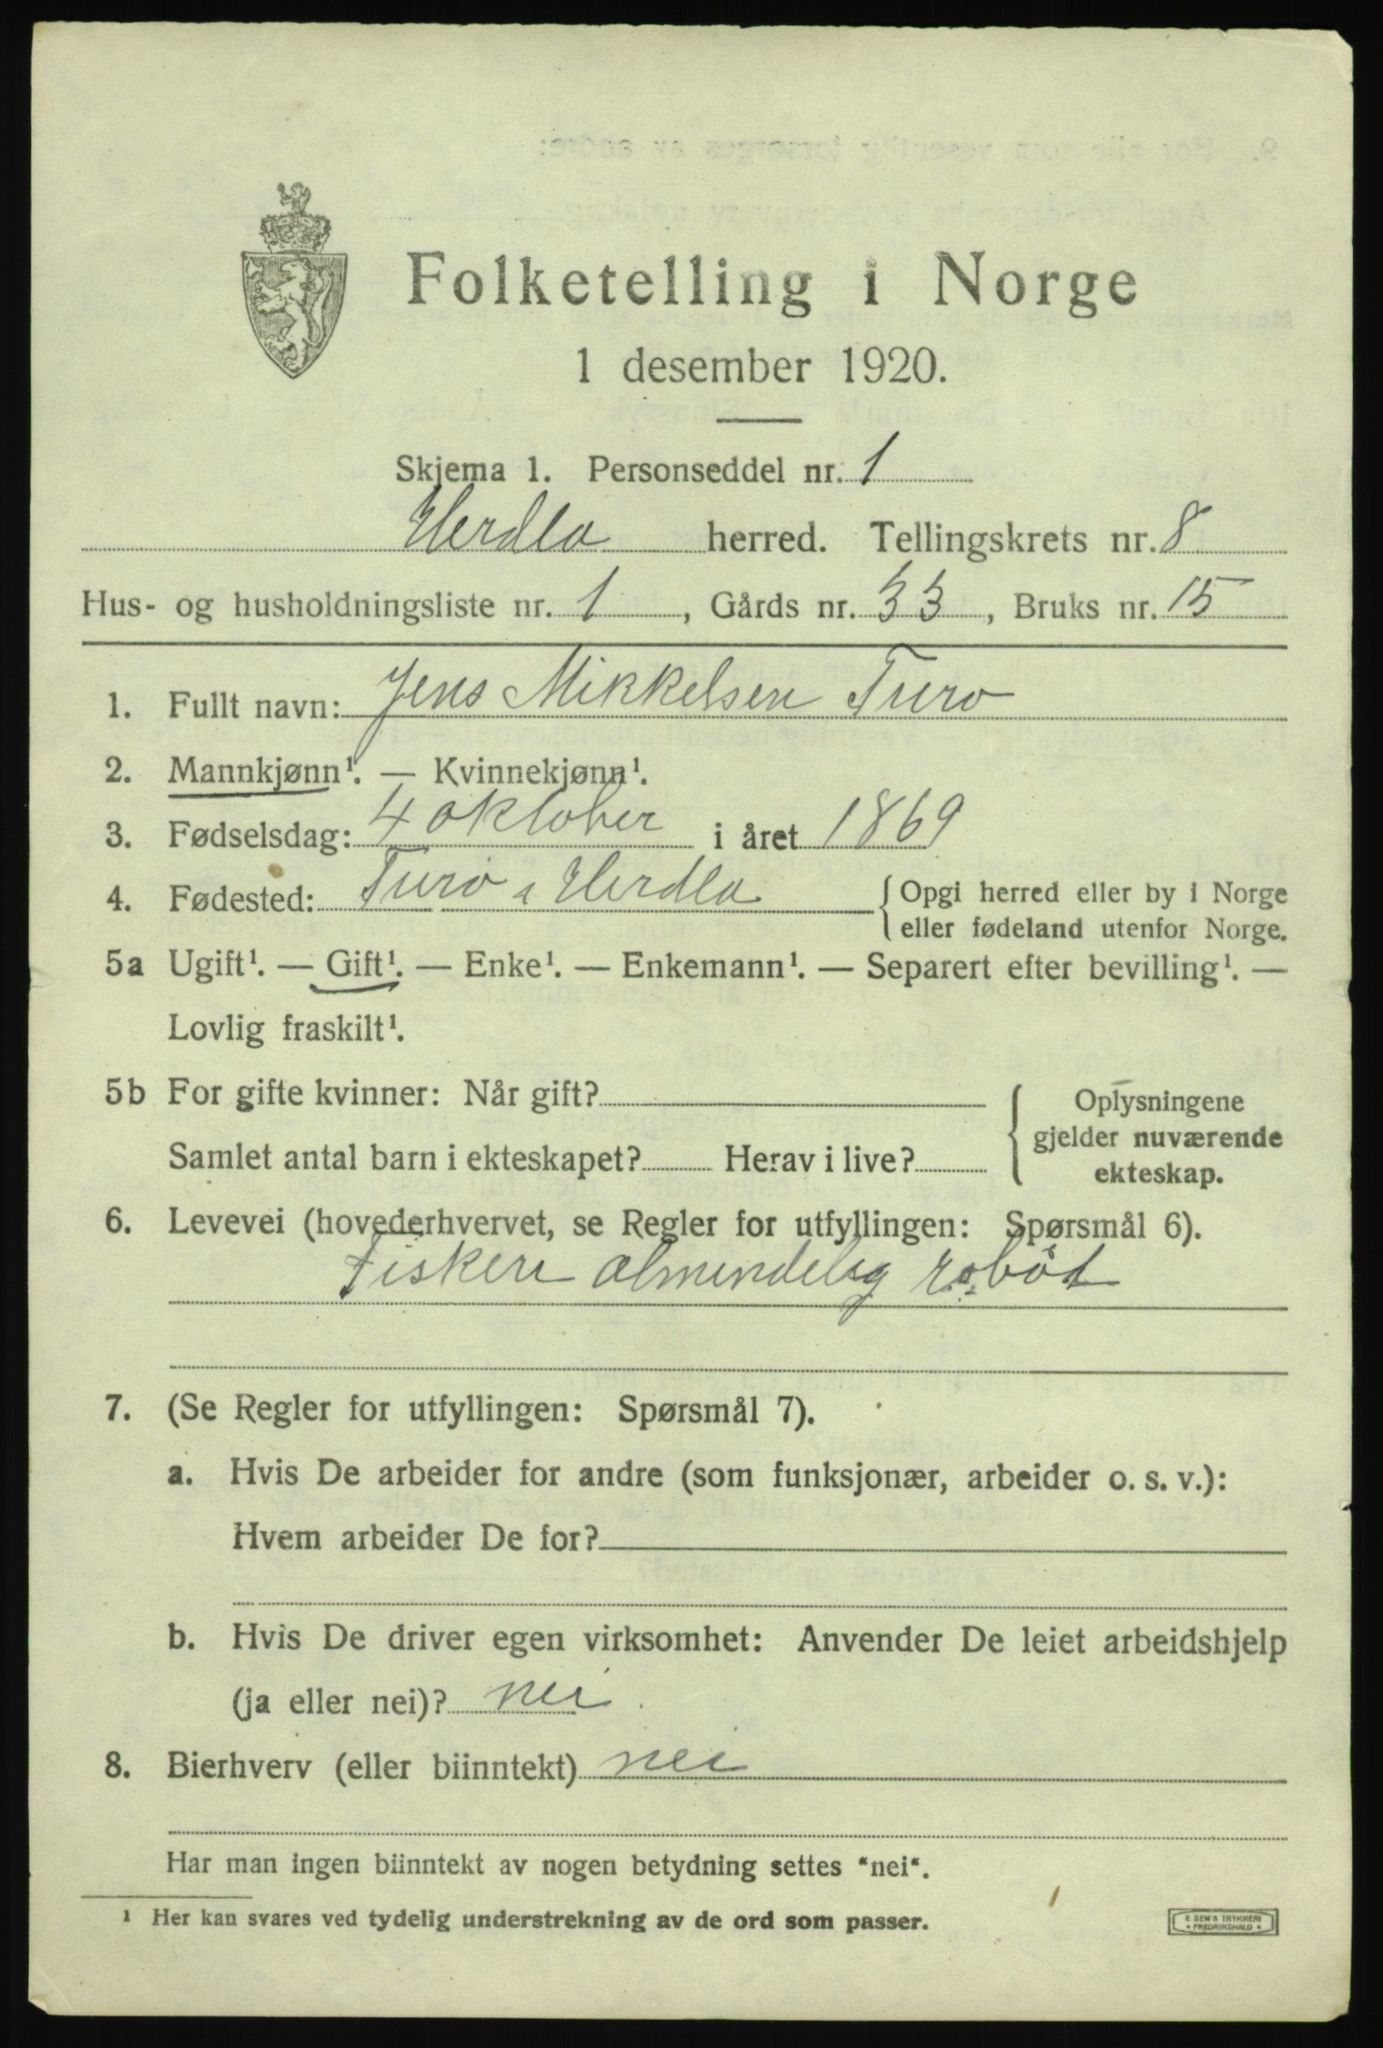 Folketelling i Norge
1 desember 1920.
Skjema 1. Personseddel nr. 1
Herdla herred. Tellingskrets nr. 8
Hus- og husholdningsliste nr. 1, Gårds nr. 33, Bruks nr. 15
1. Fullt navn: Jens Mikkelsen Turø
2. Mannkjønn¹. — Kvinnekjønn¹.
3. Fødselsdag: 4 oktober i året 1869
4. Fødested: Turø i Herdla {Opgi herred eller by i Norge
eller fødeland utenfor Norge.
5a Ugift¹. — Gift¹. — Enke¹. — Enkemann¹. — Separert efter bevilling¹. —
Lovlig fraskilt¹.
5b For gifte kvinner: Når gift?
Samlet antal barn i ekteskapet? Herav i live?
{Oplysningene
gjelder nuværende
ekteskap.
6. Levevei (hovederhvervet, se Regler for utfyllingen: Spørsmål 6).
Fiskeri almindelig robåt
7. (Se Regler for utfyllingen: Spørsmål 7).
a. Hvis De arbeider for andre (som funksjonær, arbeider o. s. v.):
Hvem arbeider De for?
b. Hvis De driver egen virksomhet: Anvender De leiet arbeidshjelp
(ja eller nei)? nei.
8. Bierhverv (eller biinntekt) nei
Har man ingen biinntekt av nogen betydning settes "nei".
¹ Her kan svares ved tydelig understrekning av de ord som passer.
E. SEM'S TRYKKERI
• FREDRIKSHALD •